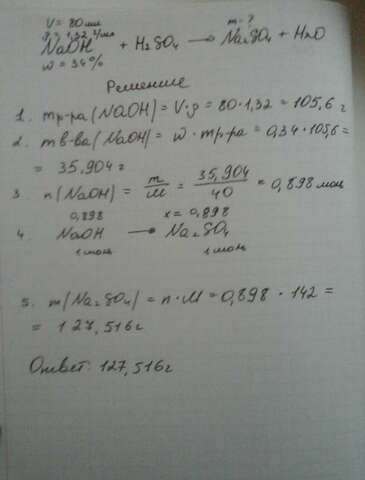 V = 80 мл
ρ = 1,32 г/мл m - ?
NaOH + H₂SO₄ → Na₂SO₄ + H₂O
w = 34%
Решение
1. mр-ра (NaOH) = V·ρ = 80·1,32 = 105,6 г
2. mв-ва (NaOH) = w · mр-ра = 0,34·105,6 =
= 35,904 г
3. n(NaOH) = m/M = 35,904/40 = 0,898 моль
0,898 x = 0,898
4. NaOH → Na₂SO₄
1 моль 1 моль
5. m(Na₂SO₄) = n·M = 0,898 · 142 =
= 127,516 г
Ответ: 127,516 г